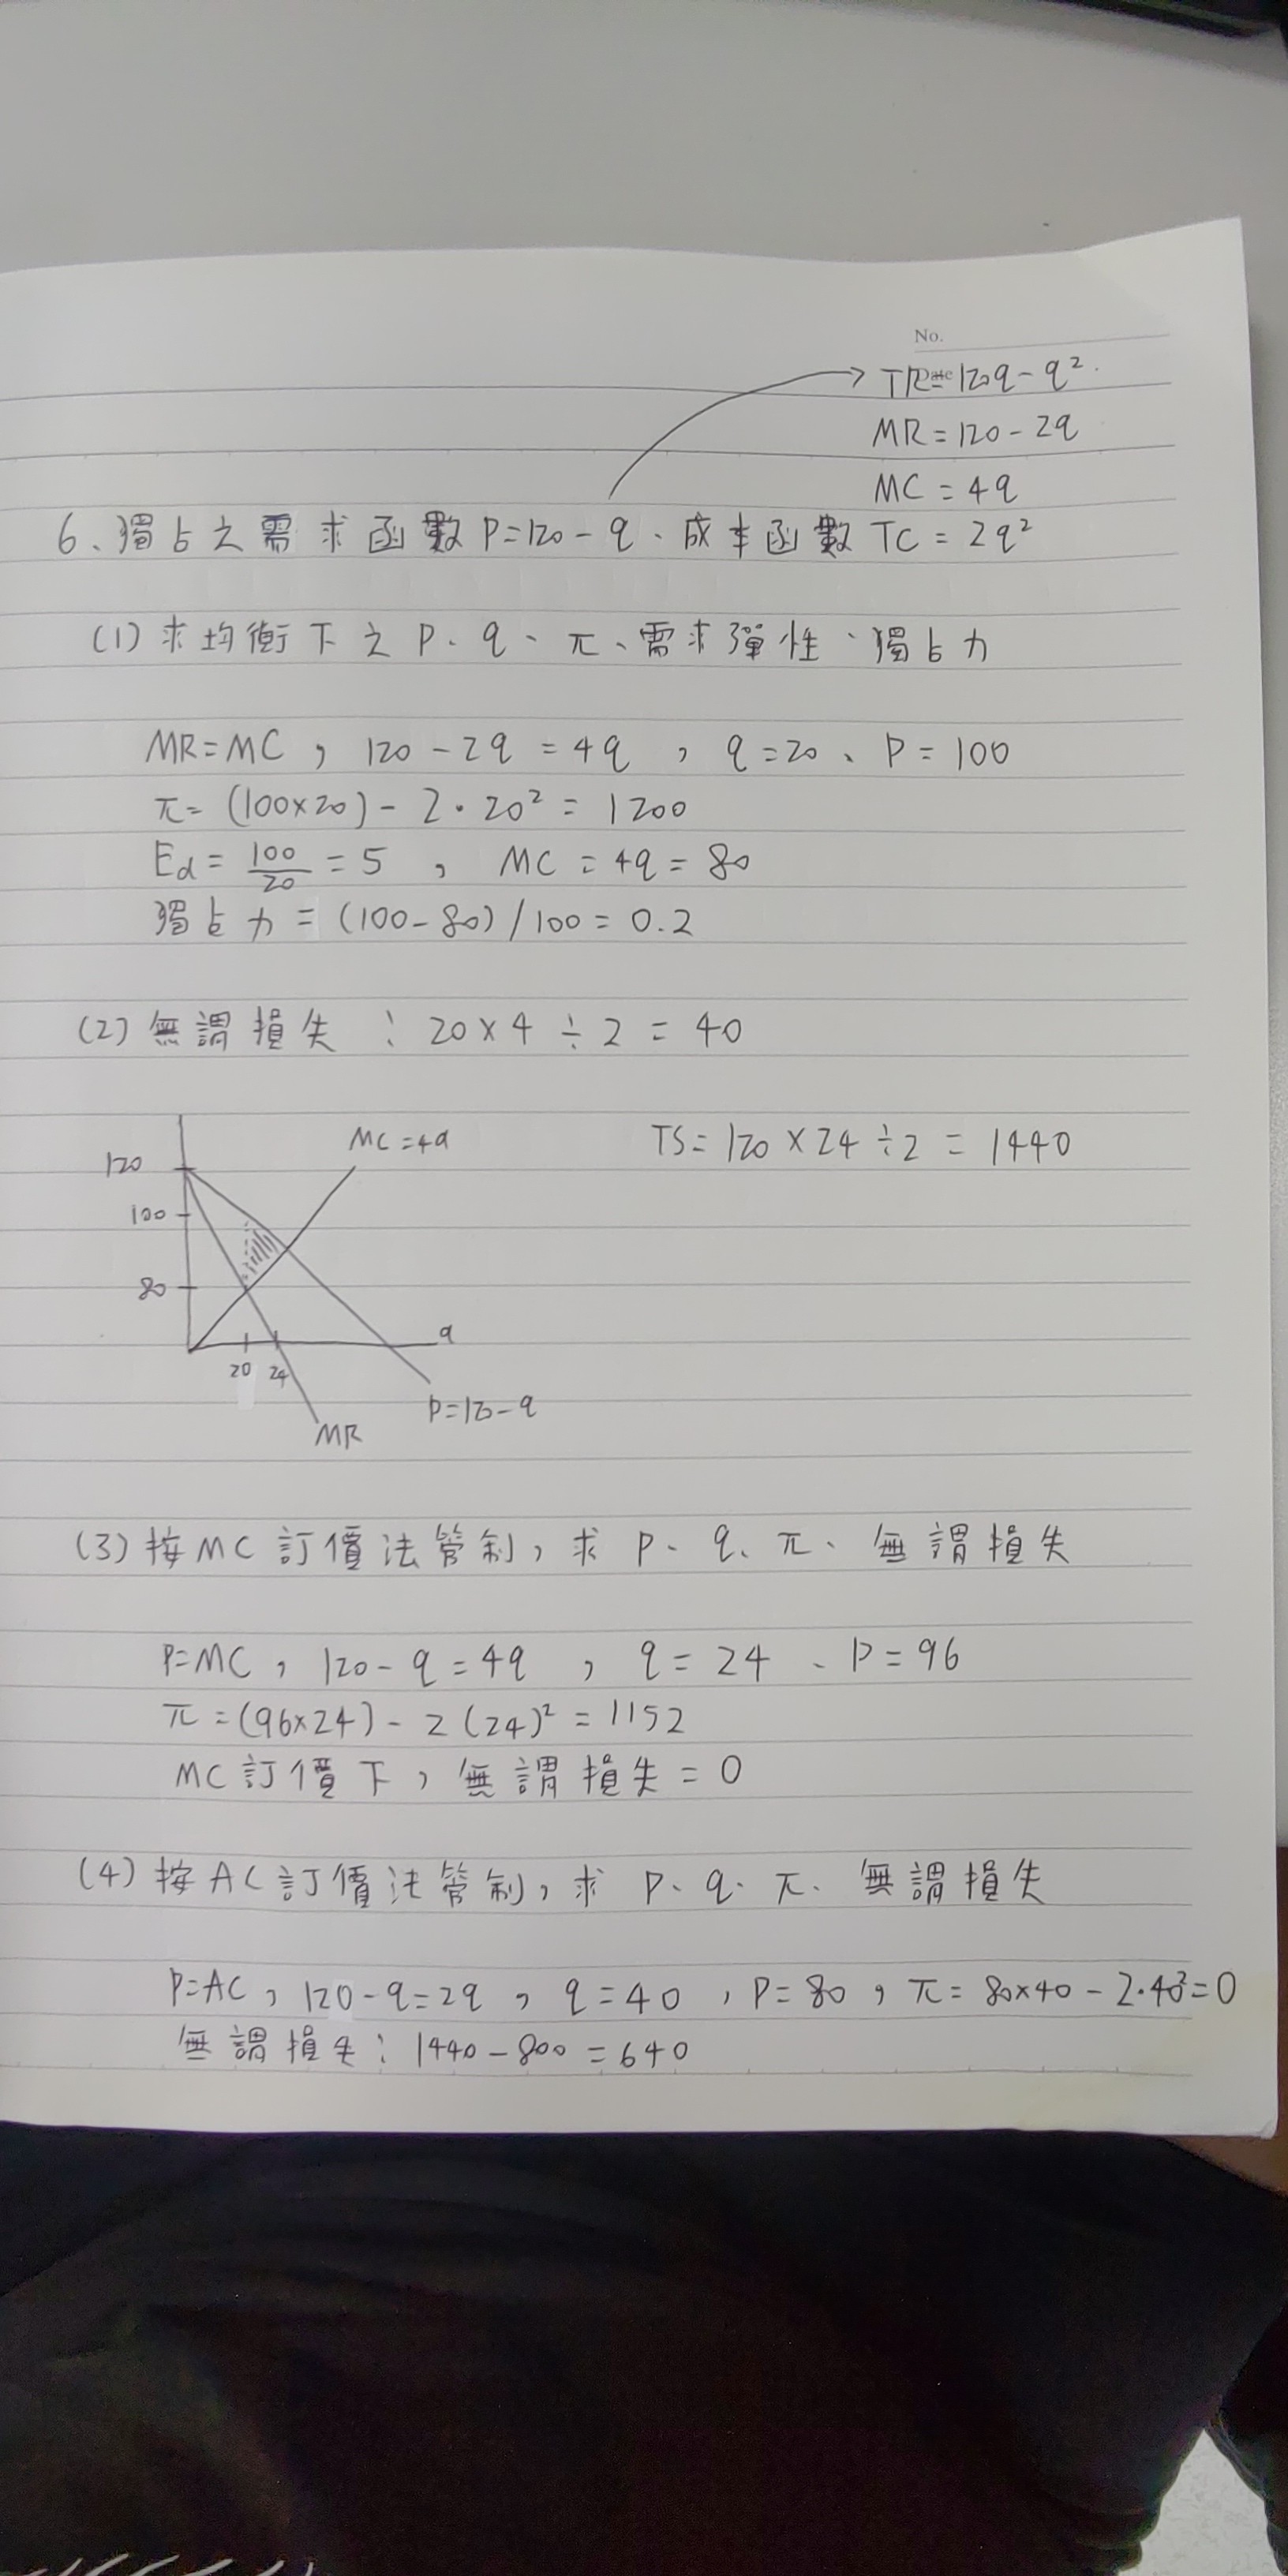 No.
TR=120q-q²
MR=120-2q
MC=4q
6、獨占之需求函數P=120-q、成本函數TC=2q²
(1)求均衡下之P、q、π、需求彈性、獨占力
MR=MC，120-2q=4q，q=20、P=100
π=(100×20)-2·20²=1200
Ed=100/20=5，MC=4q=80
獨占力=(100-80)/100=0.2
(2)無謂損失：20×4÷2=40
TS=120×24÷2=1440
MC=4q
120
100
80
q
20 24
P=120-q
MR
(3)按MC訂價法管制，求P、q、π、無謂損失
P=MC，120-q=4q，q=24、P=96
π=(96×24)-2(24)²=1152
MC訂價下，無謂損失=0
(4)按AC訂價法管制，求P、q、π、無謂損失
P=AC，120-q=2q，q=40，P=80，π=80×40-2·40²=0
無謂損失：1440-800=640